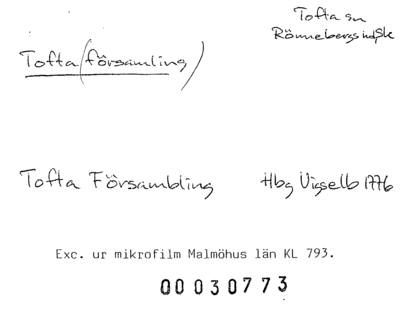 Tofta sn
Rönnebergs hd Sk
Tofta (församling)
Tofta Försambling Hbg Vigselb 1776
Exc. ur mikrofilm Malmöhus län KL 793.
00030773